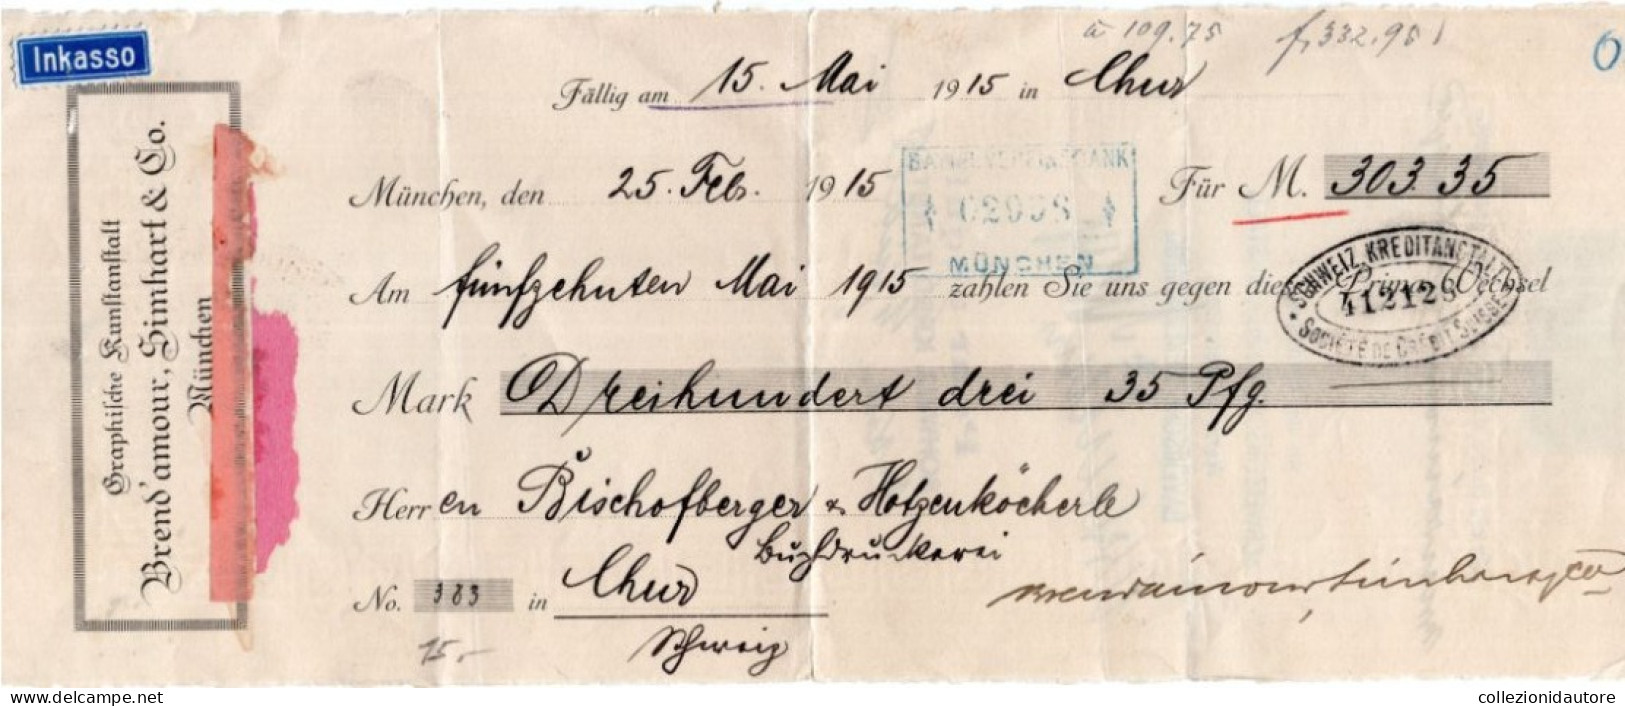 à 109.75 f. 332.95
Inkasso
Fällig am 15. Mai 1915 in Chur
Graphische Kunstanstalt
Brend'amour, Simhart & Co.
München
München, den 25. Feb. 1915 Für M. 303.35
MÜNCHEN
Am fünfzehnten Mai 1915 zahlen Sie uns gegen diesen Prima Wechsel
SCHWEIZ. KREDITANSTALT
412128
SOCIÉTÉ DE CRÉDIT SUISSE
Mark Dreihundert drei 35 Pfg.
Herren Bischofberger & Hotzenköcherle
Buchdruckerei
No. 383 in Chur
Schweiz
Brendamour Simhart & Co
15.-
www.delcampe.net
collezionidautore